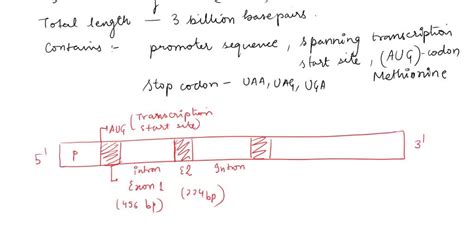 Total length — 3 billion base pairs.
Contains :- promoter sequence, spanning transcription
start site, (AUG)-codon
Methionine
Stop codon - UAA, UAG, UGA
AUG (Transcription
Start site)
5' P 3'
intron E2 Intron
Exon 1 (224 bp)
(456 bp)